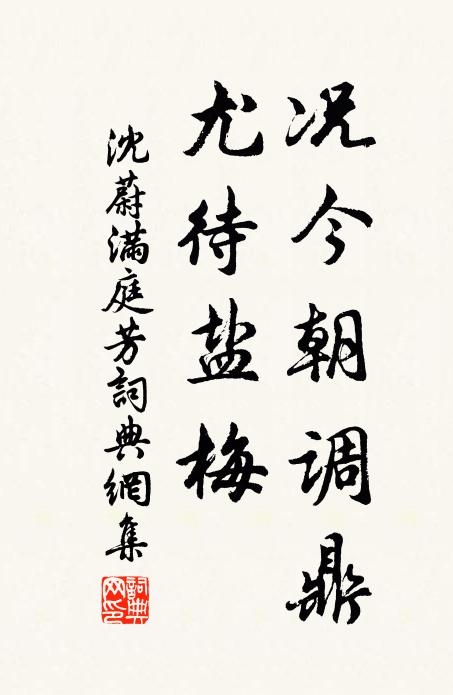 况今朝调鼎
尤待盐梅
沈蔚满庭芳詞典網集
詞典网印